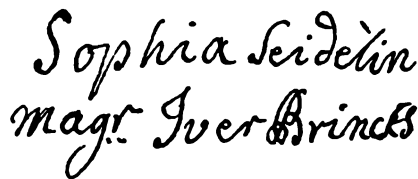 Sophia Seidelin
magr. Iver Brincks